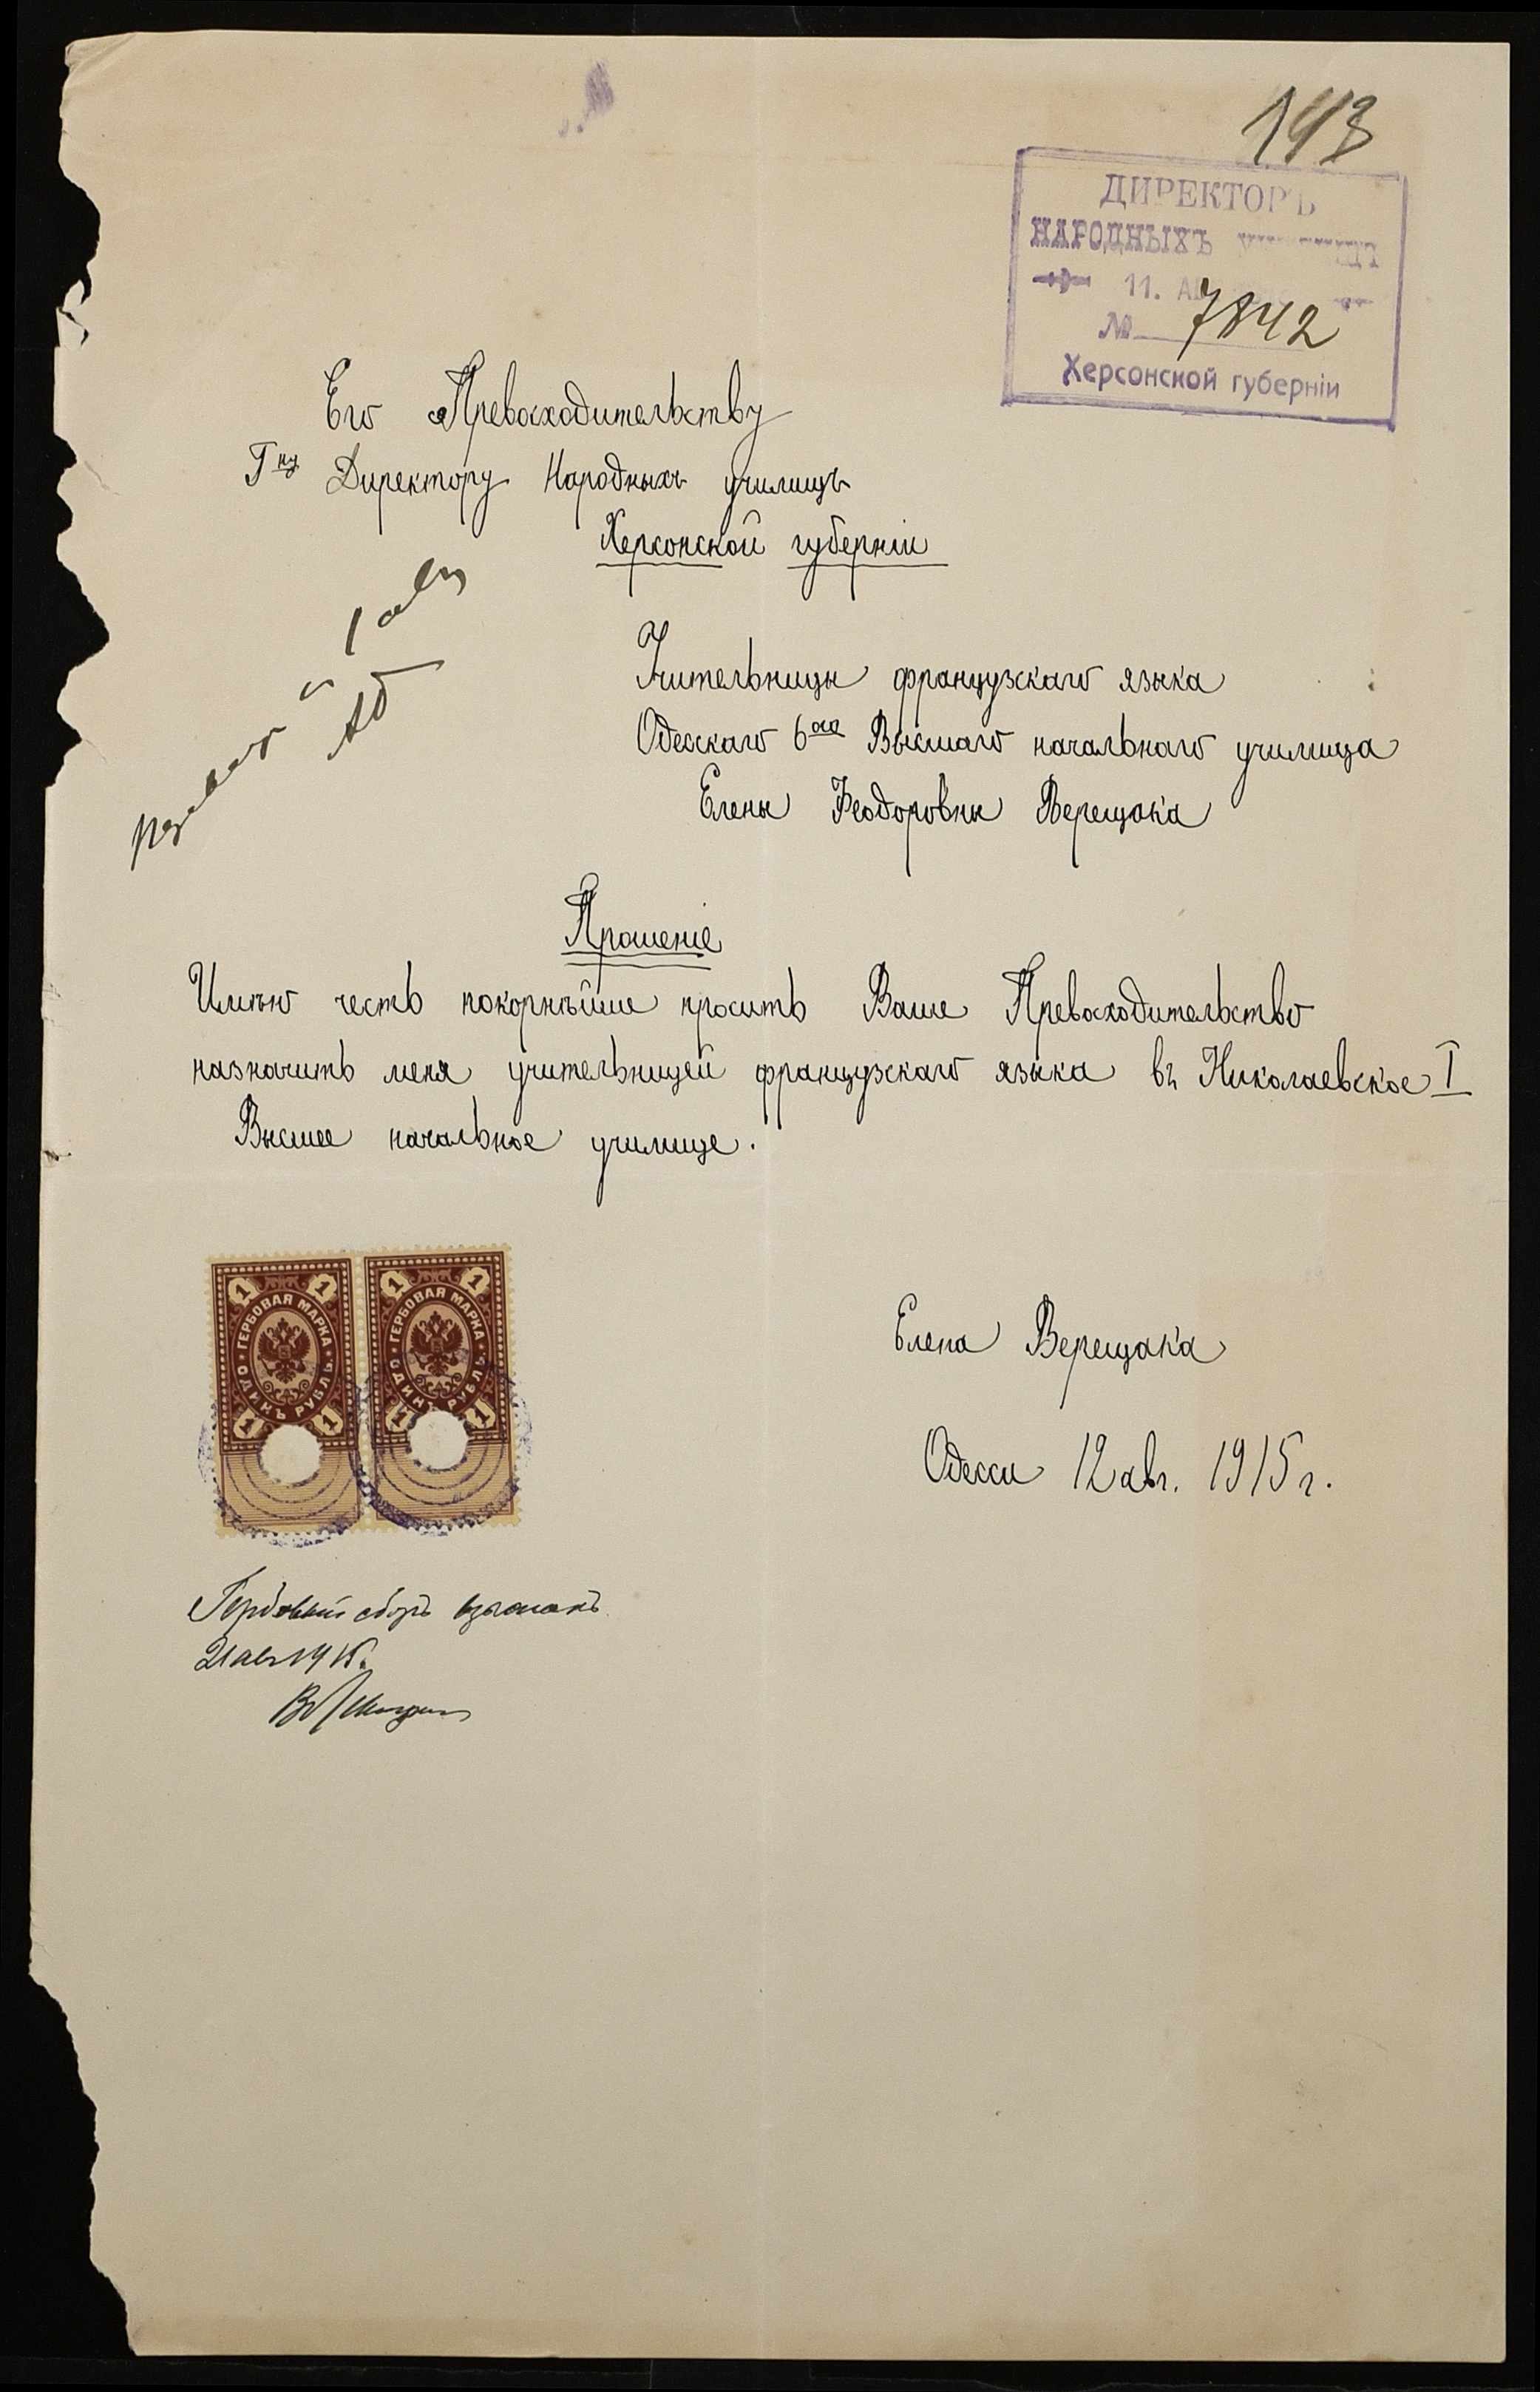 143
ДИРЕКТОРЪ
НАРОДНЫХЪ
11.
№ 7842
Херсонской губерніи
Его Превосходительству
Гну Директору Народныхъ училищъ
Херсонской губерніи
Учительницы французскаго языка
Одесскаго 6ого Высшаго начальнаго училища
Елены Ѳеодоровны Верещака
Прошеніе
Имѣю честь покорнѣйше просить Ваше Превосходительство
назначить меня учительницей французскаго языка въ Николаевское I
Высшее начальное училище.
ГЕРБОВАЯ МАРКА ОДИНЪ РУБЛЬ 1 1 1 1
ГЕРБОВАЯ МАРКА ОДИНЪ РУБЛЬ 1 1 1 1
Елена Верещака
Одесса 12 авг. 1915 г.
Гербовый сборъ взысканъ
21 авг 1915.